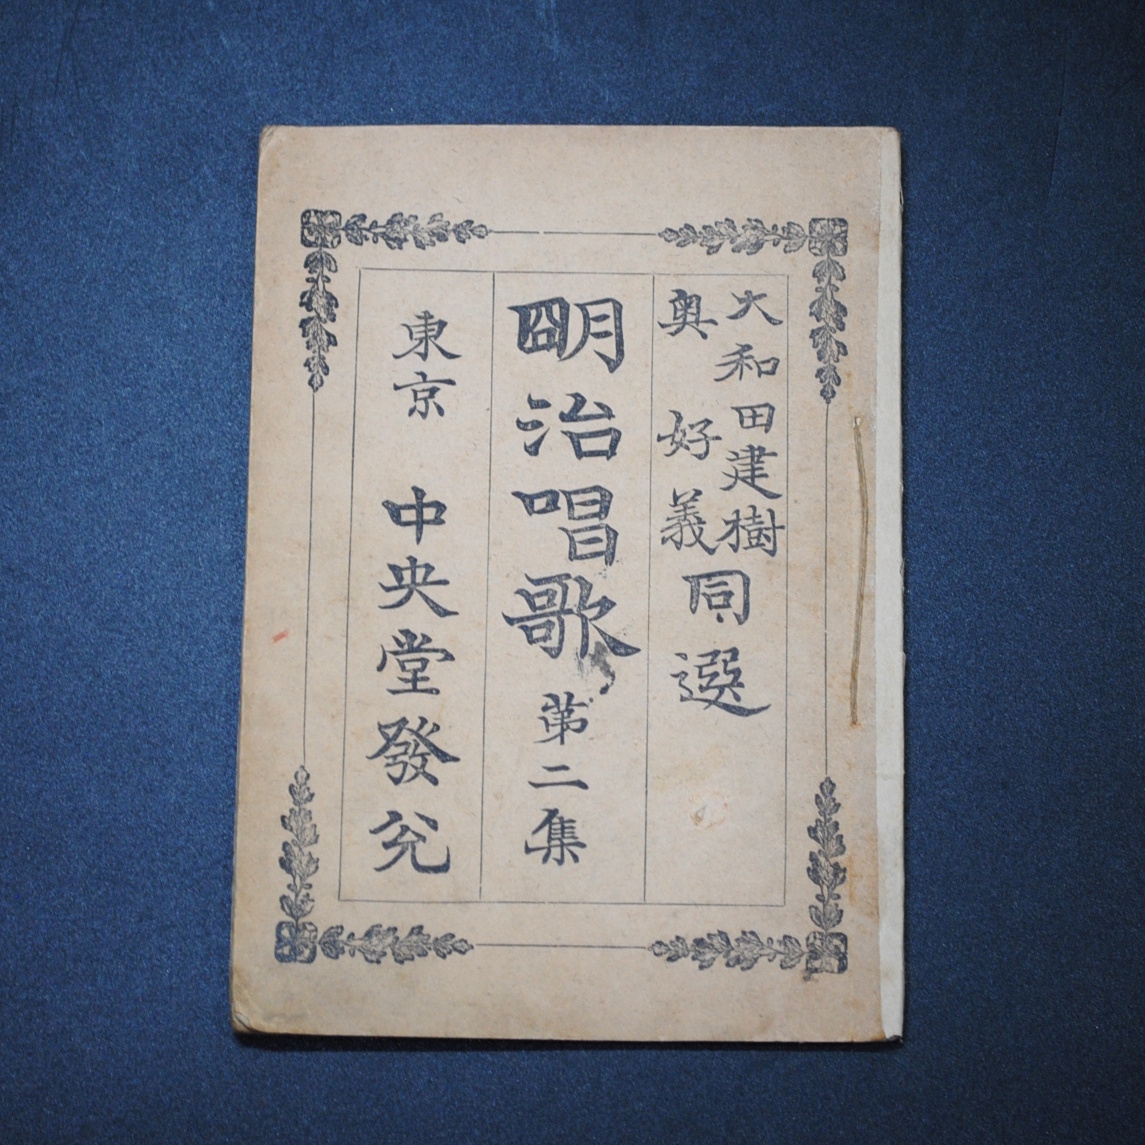 大和田建樹
奥好義
同選
明治唱歌 第二集
東京 中央堂發兌